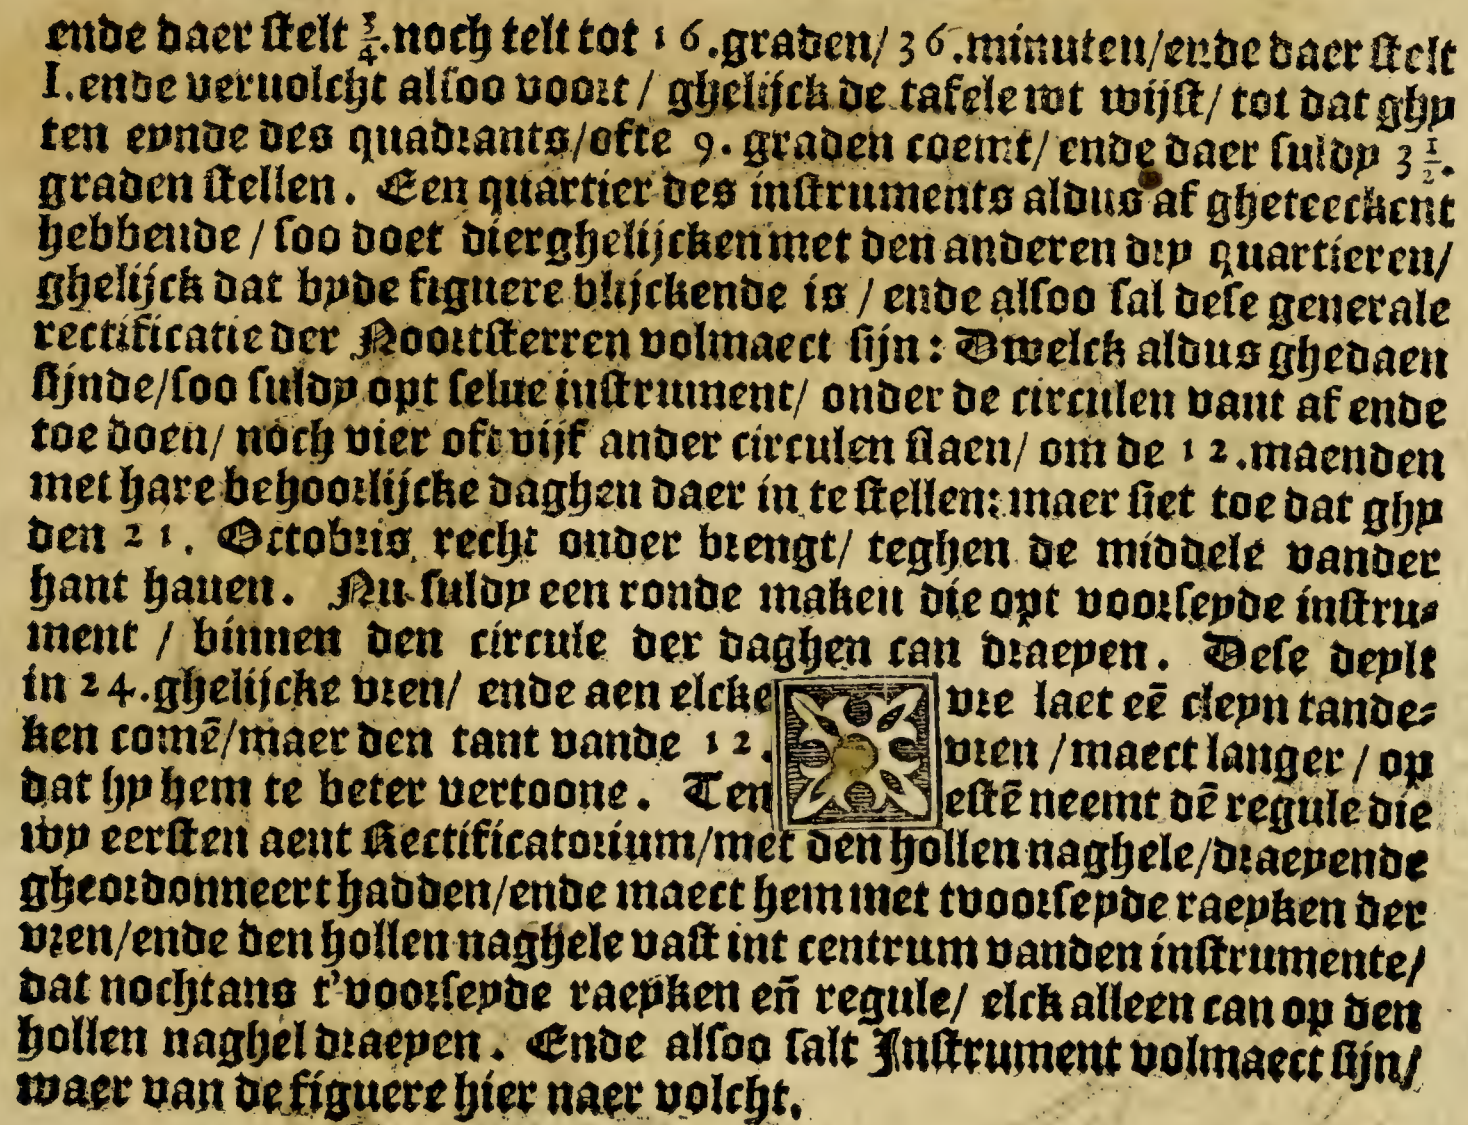 ende daer stelt ¾. noch telt tot 16. graden/ 36. minuten/ ende daer stelt
I. ende veruolcht alsoo voort/ ghelijck de tafele wt wijst/ tot dat ghy
ten eynde des quadrants/ ofte 9. graden coemt/ ende daer suldy 3 ½.
graden stellen. Een quartier des instruments aldus af gheteeckent
hebbende/ soo doet dierghelijcken met den anderen dry quartieren/
ghelijck dat byde figuere blijckende is/ ende alsoo sal dese generale
rectificatie der Noortsterren volmaect sijn: Dwelck aldus ghedaen
sijnde/ soo suldy opt selue instrument/ onder de circulen vant af ende
toe doen/ noch vier oft vijf ander circulen slaen/ om de 12. maenden
met hare behoorlijcke daghen daer in te stellen: maer siet toe dat ghy
den 21. Octobris recht onder brengt/ teghen de middele vander
hant hauen. Nu suldy een ronde maken die opt voorseyde instru-
ment/ binnen den circule der daghen can draeyen. Dese deylt
in 24. ghelijcke vren/ ende aen elcke vre laet eē cleyn tande-
ken comē/ maer den tant vande 12. vren/ maect langer/ op
dat hy hem te beter vertoone. Ten estē neemt dē regule die
wy eersten aent Rectificatorium/ met den hollen naghele/ draeyende
gheordonneert hadden/ ende maect hem met tvoorseyde raeyken der
vren/ ende den hollen naghele vast int centrum vanden instrumente/
dat nochtans t'voorseyde raeyken eñ regule/ elck alleen can op den
hollen naghel draeyen. Ende alsoo salt Instrument volmaect sijn/
waer van de figuere hier naer volcht.